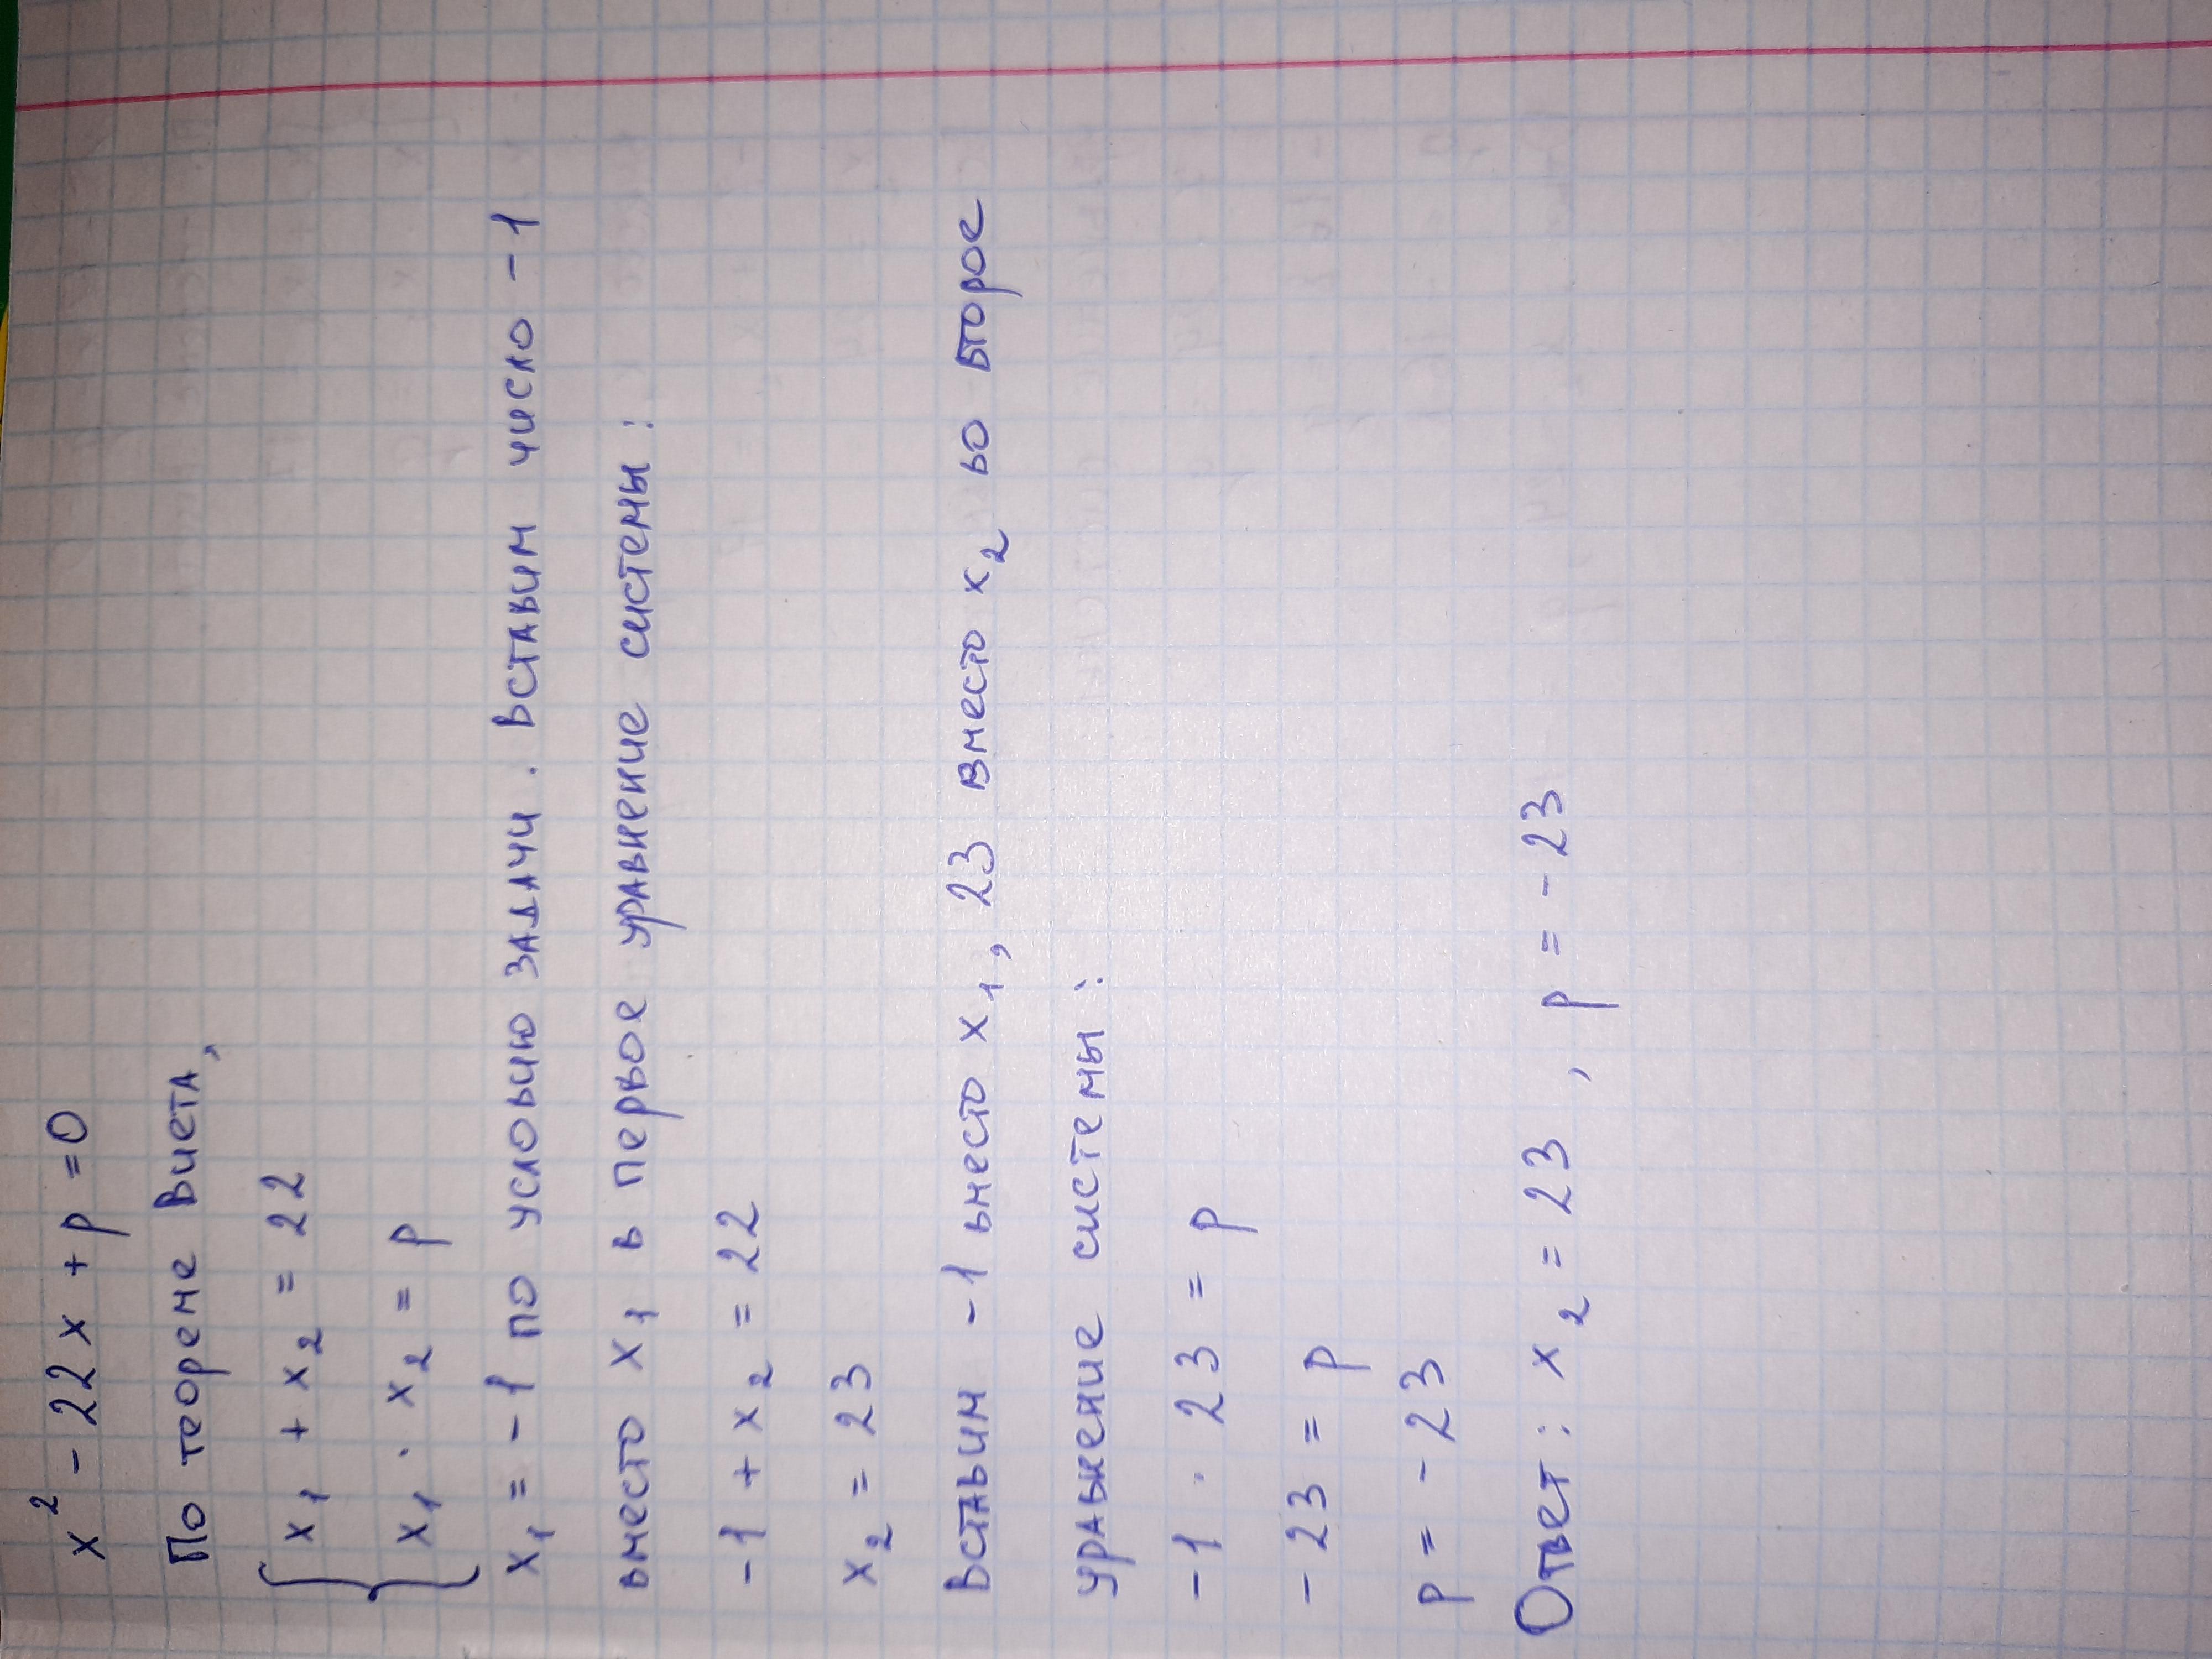 x² - 22x + p = 0
По теореме Виета,
x₁ + x₂ = 22
x₁ · x₂ = p
x₁ = -1 по условию задачи. Вставим число -1
вместо x₁ в первое уравнение системы:
-1 + x₂ = 22
x₂ = 23
Вставим -1 вместо x₁, 23 вместо x₂ во второе
уравнение системы:
-1 · 23 = p
-23 = p
p = -23
Ответ: x₂ = 23, p = -23